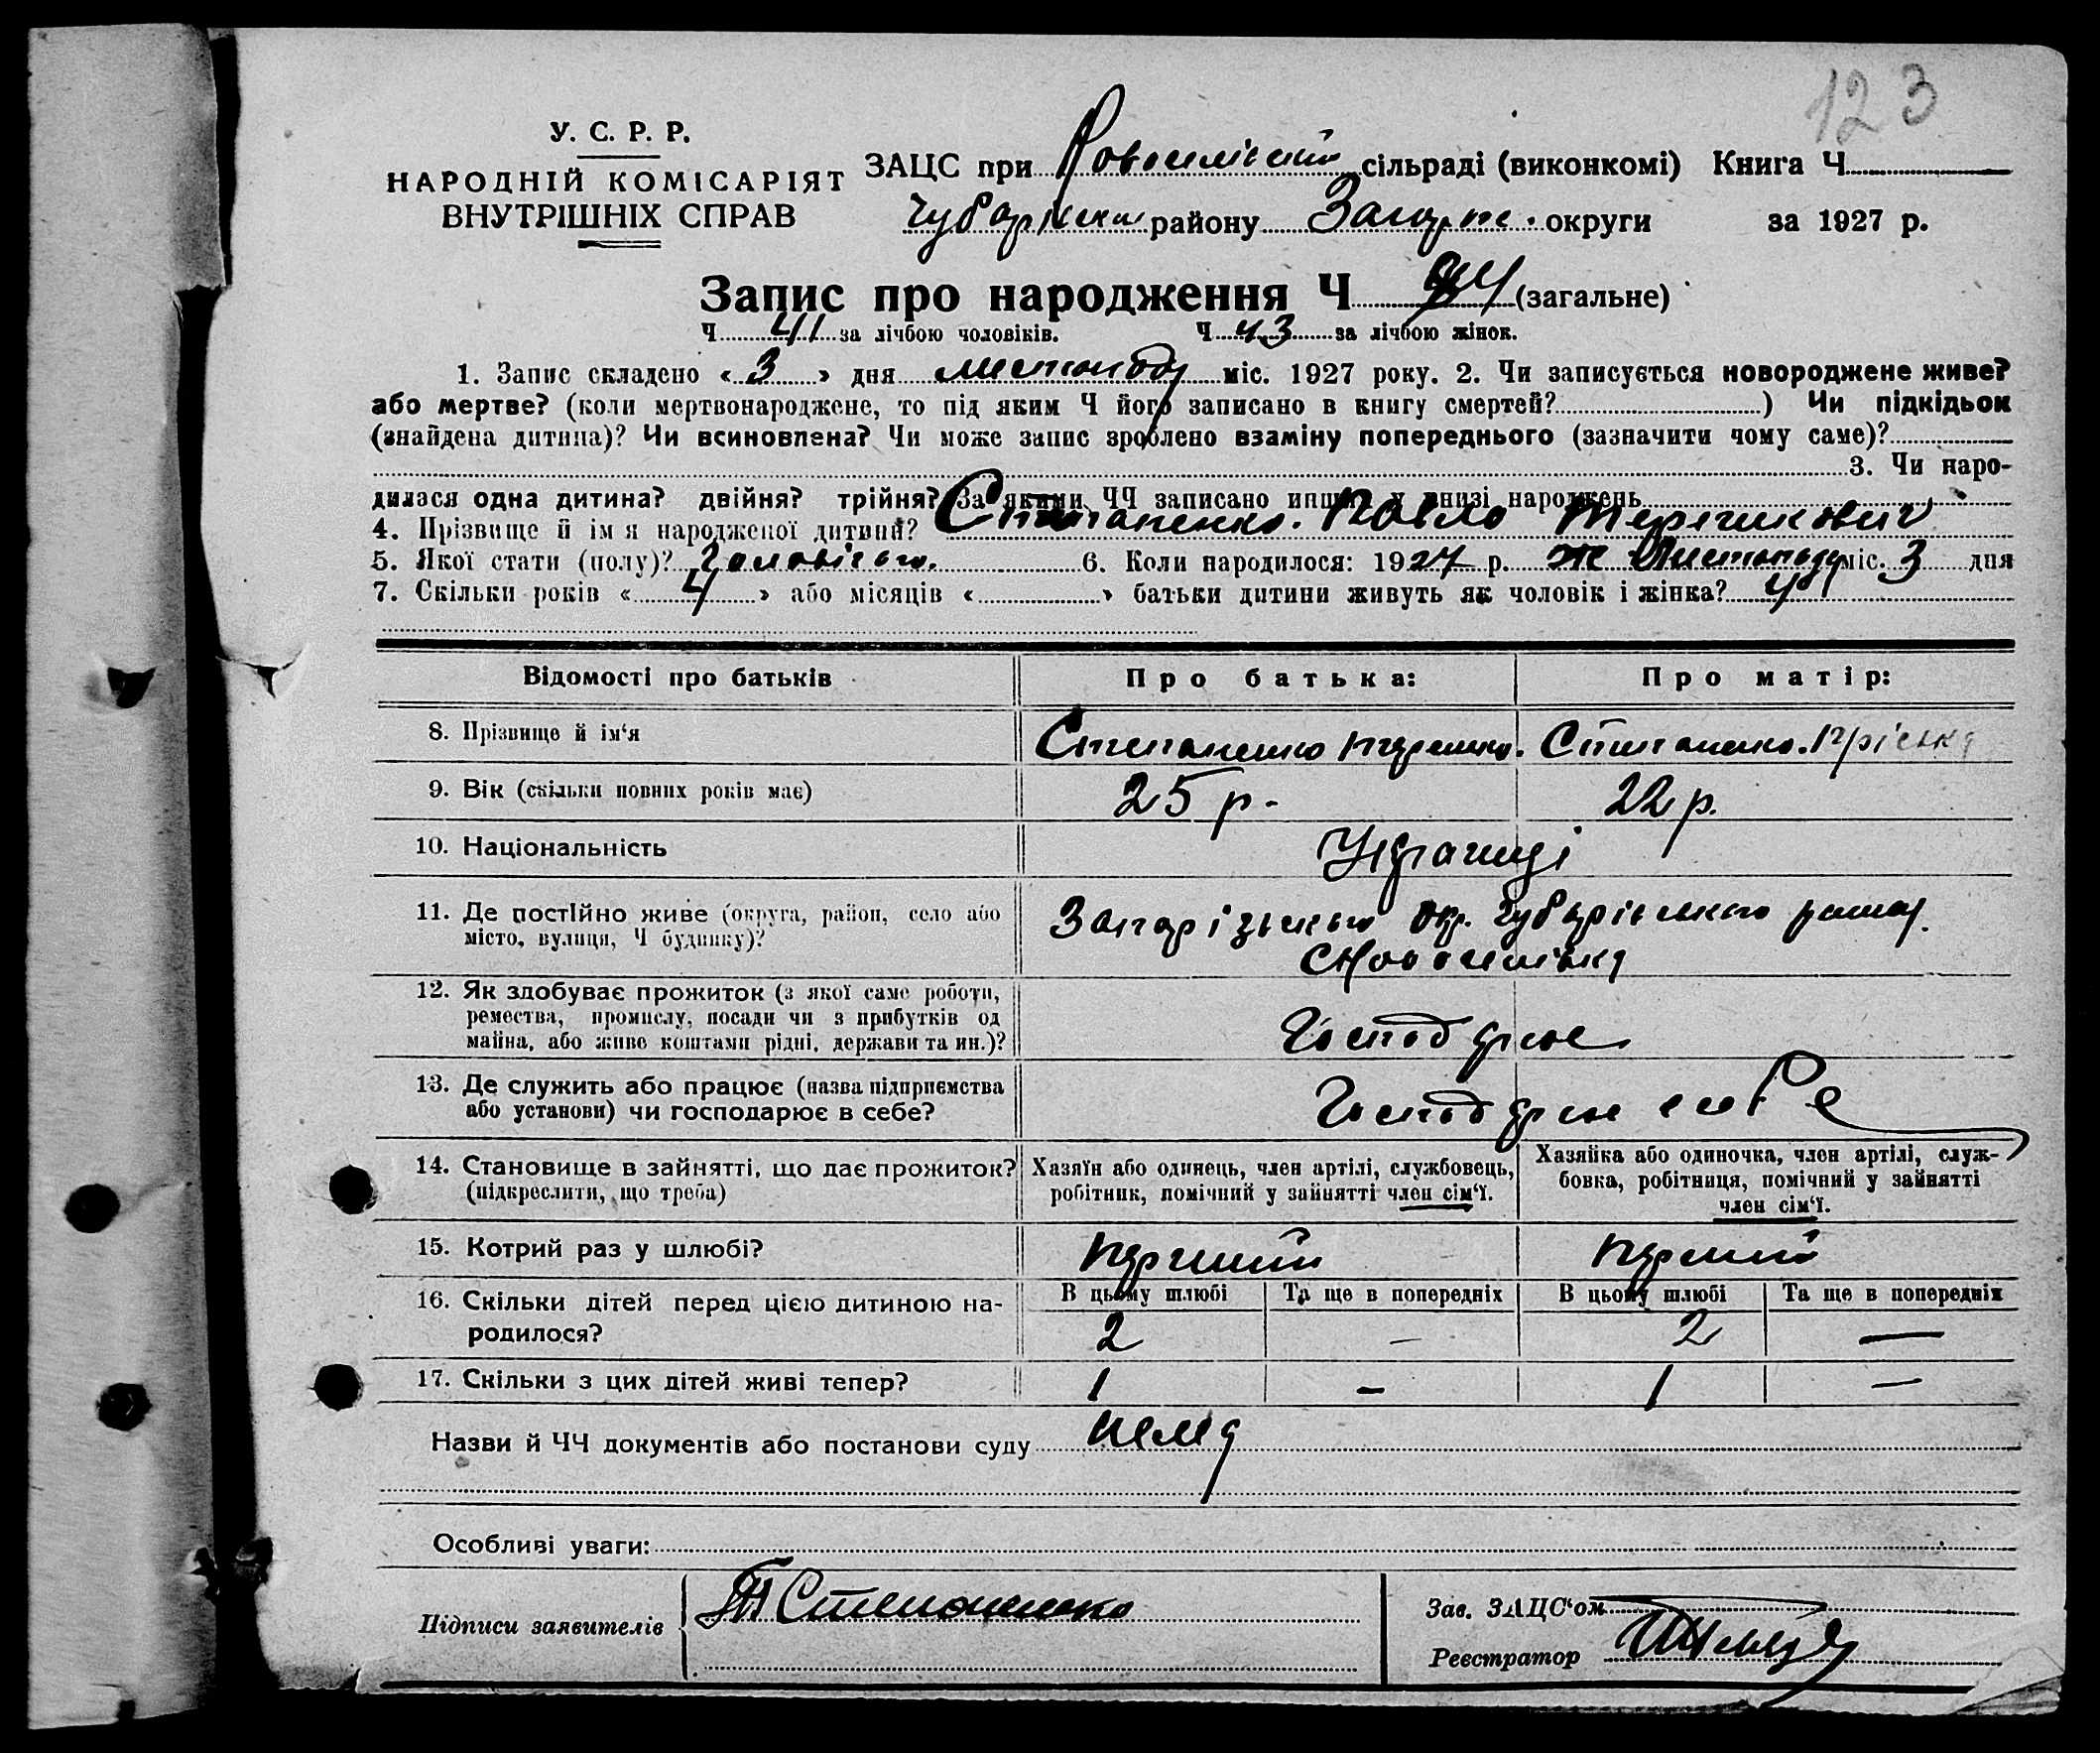 123
У. С. Р. Р.
НАРОДНІЙ КОМІСАРІЯТ
ВНУТРІШНІХ СПРАВ
ЗАЦС при сільраді (виконкомі) Книга Ч
району округи за 1927 р.
Запис про народження Ч (загальне)
Ч 41 за лічбою чоловіків. Ч 43 за лічбою жінок.
1. Запис складено « 3 » дня листопада міс. 1927 року. 2. Чи записується новороджене живе?
або мертве? (коли мертвонароджене, то під яким Ч його записано в книгу смертей? ) Чи підкідьок
(знайдена дитина)? Чи всиновлена? Чи може запис зроблено взаміну попереднього (зазначити чому саме)?
3. Чи наро-
дилася одна дитина? двійня? трійня? За якими ЧЧ записано инших у книзі народжень
4. Прізвище й ім я народженої дитини? Степаненко. Павло
5. Якої стати (полу)? 6. Коли народилося: 1927 р. Листопада міс. 3 дня
7. Скільки років « 4 » або місяців « » батьки дитини живуть як чоловік і жінка? 4
Відомості про батьків Про батька: Про матір:
8. Прізвище й ім‘я Степаненко Степаненко.
9. Вік (скільки повних років має) 25 р. 22 р.
10. Національність Українці
11. Де постійно живе (округа, район, село або
місто, вулиця, Ч будинку)? Запорізького Окр. Чубарівського
12. Як здобуває прожиток (з якої саме роботи,
ремества, промислу, посади чи з прибутків од
майна, або живе коштами рідні, держави та ин.)?
13. Де служить або працює (назва підприємства
або установи) чи господарює в себе?
14. Становище в зайнятті, що дає прожиток? Хазяїн або одинець, член артілі, службовець, Хазяйка або одиночка, член артілі, служ-
(підкреслити, що треба) робітник, помічний у зайнятті член сім‘ї. бовка, робітниця, помічний у зайнятті
член сім‘ї.
15. Котрий раз у шлюбі? перший перший
16. Скільки дітей перед цією дитиною на- В цьому шлюбі Та ще в попередніх В цьому шлюбі Та ще в попередніх
родилося? 2 — 2 —
17. Скільки з цих дітей живі тепер? 1 — 1 —
Назви й ЧЧ документів або постанови суду нема
Особливі уваги:
Підписи заявителів Степаненко
Зав. ЗАЦС‘ом
Реєстратор